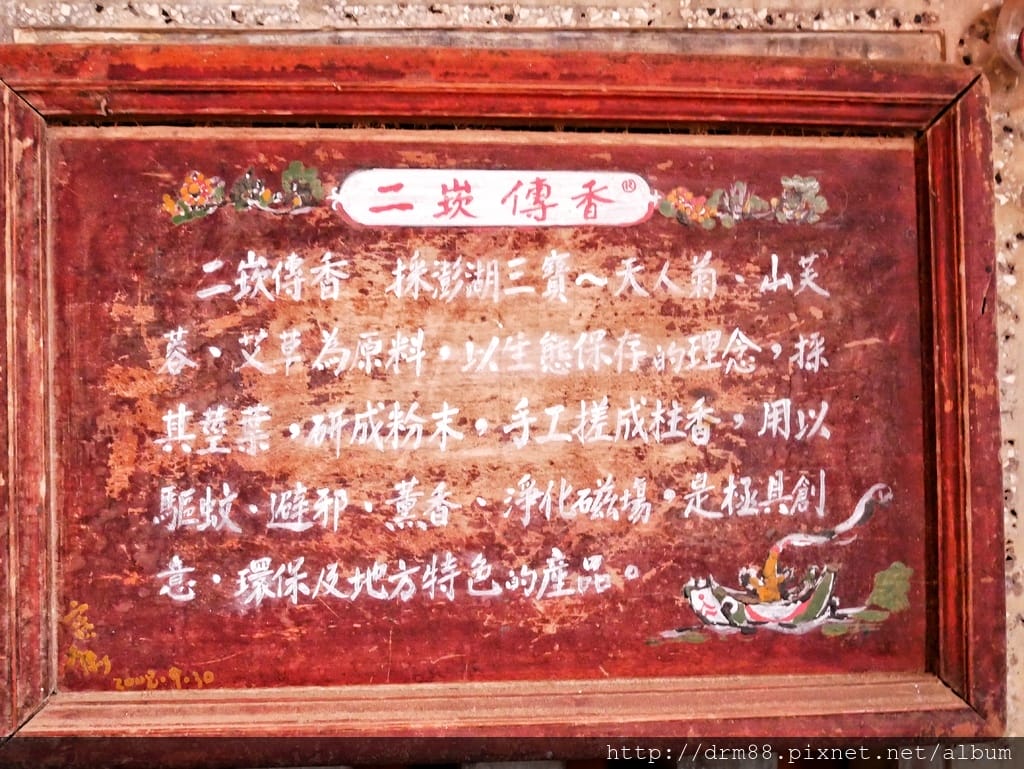 二崁傳香®
二崁傳香 採澎湖三寶～天人菊、山芙
蓉、艾草為原料，以生態保存的理念，採
其莖葉，研成粉末，手工搓成柱香，用以
驅蚊、避邪、薰香、淨化磁場。是極具創
意、環保及地方特色的產品。
2008.9.30
http://drm88.pixnet.net/album